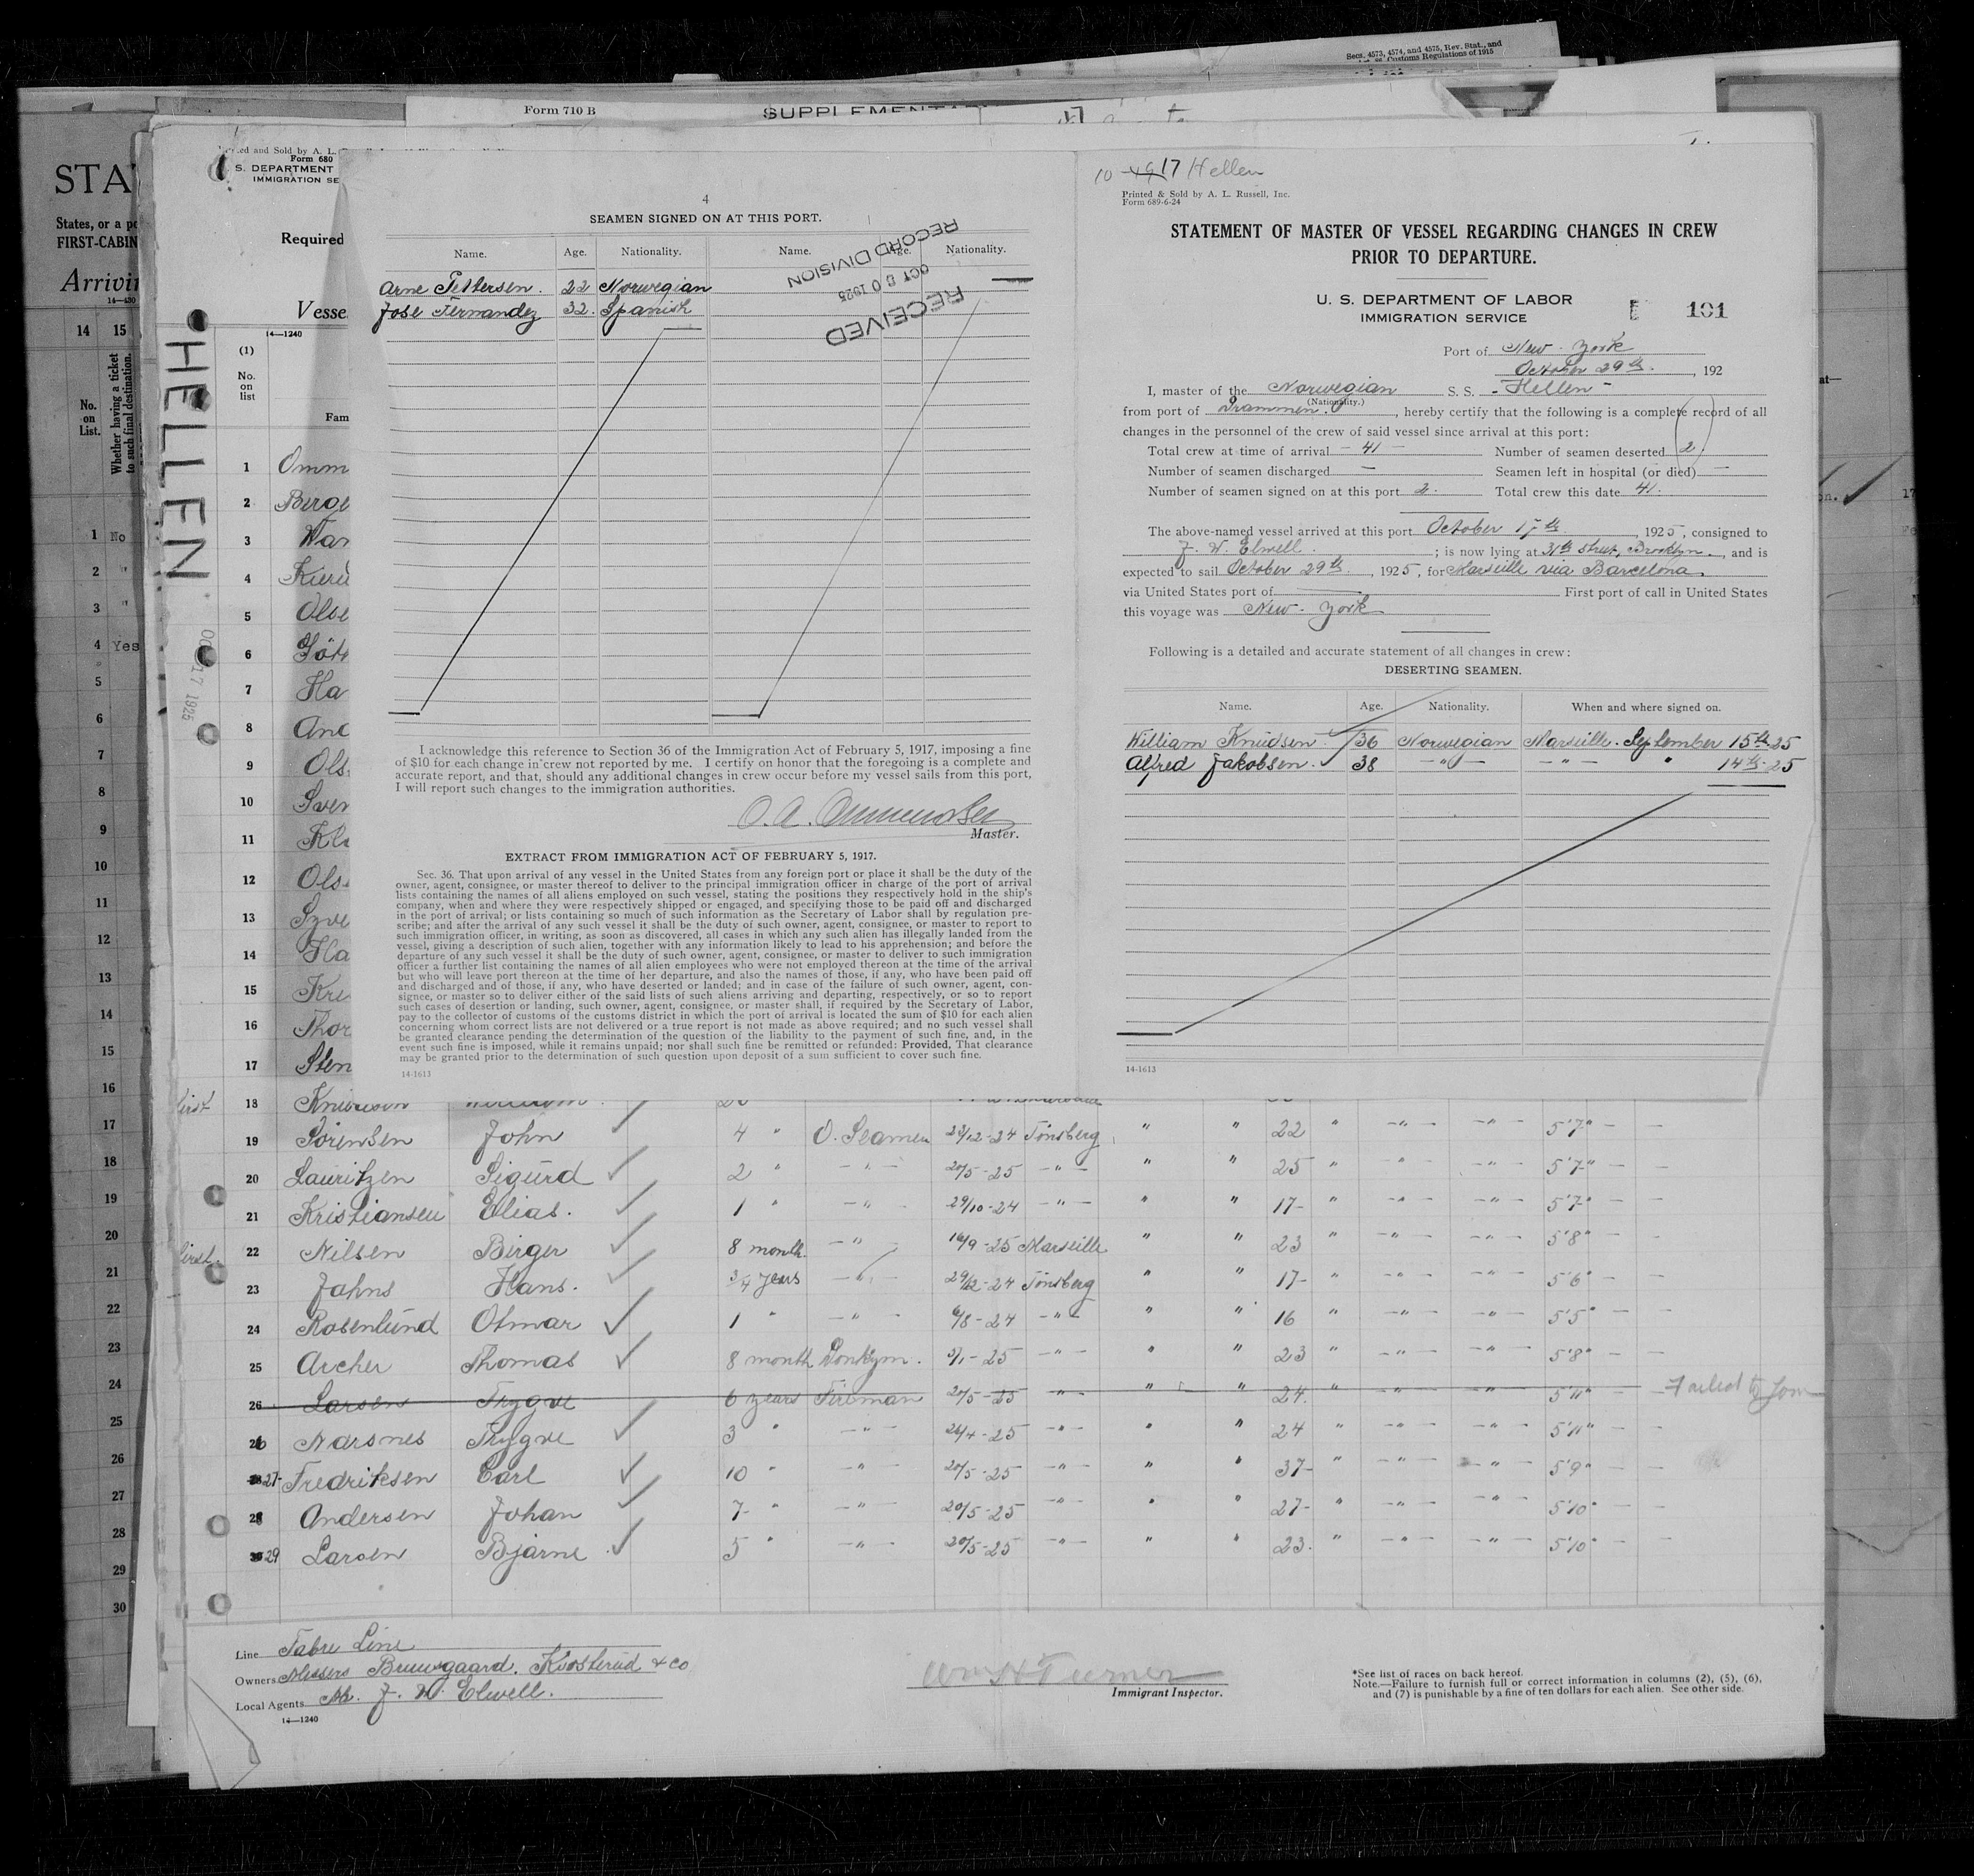 Secs. 4573, 4574, and 4575, Rev. Stat., and
Customs Regulations of 1915
Form 710 B
STA
States, or a po
FIRST-CABIN
Arrivin
14—430
14 15
No. on List.
Whether having a ticket to such final destination.
1 No
2 "
3 "
4 Yes
5
6
7
8
9
10
11
12
13
14
15
16
17
18
19
20
21
22
23
24
25
26
27
28
29
30
Form 680
S. DEPARTMENT
IMMIGRATION SE
Required
Vesse
14—1240
(1)
No. on list
Fam
HELLEN
OCT 17 1925
1 Omm
2 Berge
3 War
4
5 Olse
6
7 Ha
8 And
9 Ols
10 Sven
11 Kla
12 Ols
13 Syve
14 Ha
15 Kri
16 Thor
17 Sten
4
SEAMEN SIGNED ON AT THIS PORT.
Name. Age. Nationality. Name. Age. Nationality.
Arne Pettersen. 22 Norwegian
Jose Fernandez 32. Spanish
RECEIVED
OCT 30 1925
RECORD DIVISION
I acknowledge this reference to Section 36 of the Immigration Act of February 5, 1917, imposing a fine
of $10 for each change in crew not reported by me. I certify on honor that the foregoing is a complete and
accurate report, and that, should any additional changes in crew occur before my vessel sails from this port,
I will report such changes to the immigration authorities.
O. A. Ommundsen
Master.
EXTRACT FROM IMMIGRATION ACT OF FEBRUARY 5, 1917.
Sec. 36. That upon arrival of any vessel in the United States from any foreign port or place it shall be the duty of the
owner, agent, consignee, or master thereof to deliver to the principal immigration officer in charge of the port of arrival
lists containing the names of all aliens employed on such vessel, stating the positions they respectively hold in the ship's
company, when and where they were respectively shipped or engaged, and specifying those to be paid off and discharged
in the port of arrival; or lists containing so much of such information as the Secretary of Labor shall by regulation pre-
scribe; and after the arrival of any such vessel it shall be the duty of such owner, agent, consignee, or master to report to
such immigration officer, in writing, as soon as discovered, all cases in which any such alien has illegally landed from the
vessel, giving a description of such alien, together with any information likely to lead to his apprehension; and before the
departure of any such vessel it shall be the duty of such owner, agent, consignee, or master to deliver to such immigration
officer a further list containing the names of all alien employees who were not employed thereon at the time of the arrival
but who will leave port thereon at the time of her departure, and also the names of those, if any, who have been paid off
and discharged and of those, if any, who have deserted or landed; and in case of the failure of such owner, agent, con-
signee, or master so to deliver either of the said lists of such aliens arriving and departing, respectively, or so to report
such cases of desertion or landing, such owner, agent, consignee, or master shall, if required by the Secretary of Labor,
pay to the collector of customs of the customs district in which the port of arrival is located the sum of $10 for each alien
concerning whom correct lists are not delivered or a true report is not made as above required; and no such vessel shall
be granted clearance pending the determination of the question of the liability to the payment of such fine, and, in the
event such fine is imposed, while it remains unpaid; nor shall such fine be remitted or refunded: Provided, That clearance
may be granted prior to the determination of such question upon deposit of a sum sufficient to cover such fine.
14-1613
17 Hellen
Printed & Sold by A. L. Russell, Inc.
Form 689-6-24
STATEMENT OF MASTER OF VESSEL REGARDING CHANGES IN CREW
PRIOR TO DEPARTURE.
U. S. DEPARTMENT OF LABOR
IMMIGRATION SERVICE
101
Port of New-York
October 29th, 192
I, master of the Norwegian S. S. - Hellen -
(Nationality.)
from port of Drammen., hereby certify that the following is a complete record of all
changes in the personnel of the crew of said vessel since arrival at this port:
Total crew at time of arrival - 41 - Number of seamen deserted 2.
Number of seamen discharged — Seamen left in hospital (or died) —
Number of seamen signed on at this port 2. Total crew this date 41.
The above-named vessel arrived at this port October 17th, 1925, consigned to
F. W. Elwell. ; is now lying at 31th Street, Brooklyn., and is
expected to sail October 29th, 1925, for Marseille via Barcelona.
via United States port of — First port of call in United States
this voyage was New-York
Following is a detailed and accurate statement of all changes in crew:
DESERTING SEAMEN.
Name. Age. Nationality. When and where signed on.
William Knudsen 36 Norwegian Marseille. September 15th 25
Alfred Jakobsen. 38 —"— —"— " 14th-25
14-1613
first 18 Knudsen William.
19 Sörensen John 4 " O. Seamen 23/12-24 Tönsberg " " 22 " —"— —"— 5'7" — —
20 Lauritzen Sigurd 2 " —"— 20/5-25 —"— " " 25 " —"— —"— 5'7" — —
21 Kristiansen Elias. 1 " —"— 29/10-24 —"— " " 17- " —"— —"— 5'7" — —
first. 22 Nilsen Birger 8 month. —"— 16/9-25 Marseille " " 23 " —"— —"— 5'8" — —
23 Jahns Hans. 3/4 years —"— 29/12-24 Tönsberg " " 17- " —"— —"— 5'6" — —
24 Rosenlund Otmar 1 " —"— 6/8-24 —"— " " 16 " —"— —"— 5'5" — —
25 Archer Thomas 8 month Donkym. 5/1-25 —"— " " 23 " —"— —"— 5'8" — —
26 Larsen Trygve 6 years Fireman 20/5-25 —"— " " 24. " —"— —"— 5'11" — Failed to Join
26 Narsnes Trygve 3 " —"— 26/4-25 —"— " " 24 " —"— —"— 5'11" — —
27- Fredriksen Carl 10 " —"— 20/5-25 —"— " " 37- " —"— —"— 5'9" — —
28 Andersen Johan 7- " —"— 20/5-25 —"— " " 27- " —"— —"— 5'10" — —
29 Larsen Bjarne 5 " —"— 20/5-25 —"— " " 23. " —"— —"— 5'10" — —
Line Fabre Line
Owners Messers Bruusgaard. Kiosterud & Co
Local Agents Mr. F. W. Elwell.
14—1240
Wm H Turner
Immigrant Inspector.
*See list of races on back hereof.
Note.—Failure to furnish full or correct information in columns (2), (5), (6),
and (7) is punishable by a fine of ten dollars for each alien. See other side.